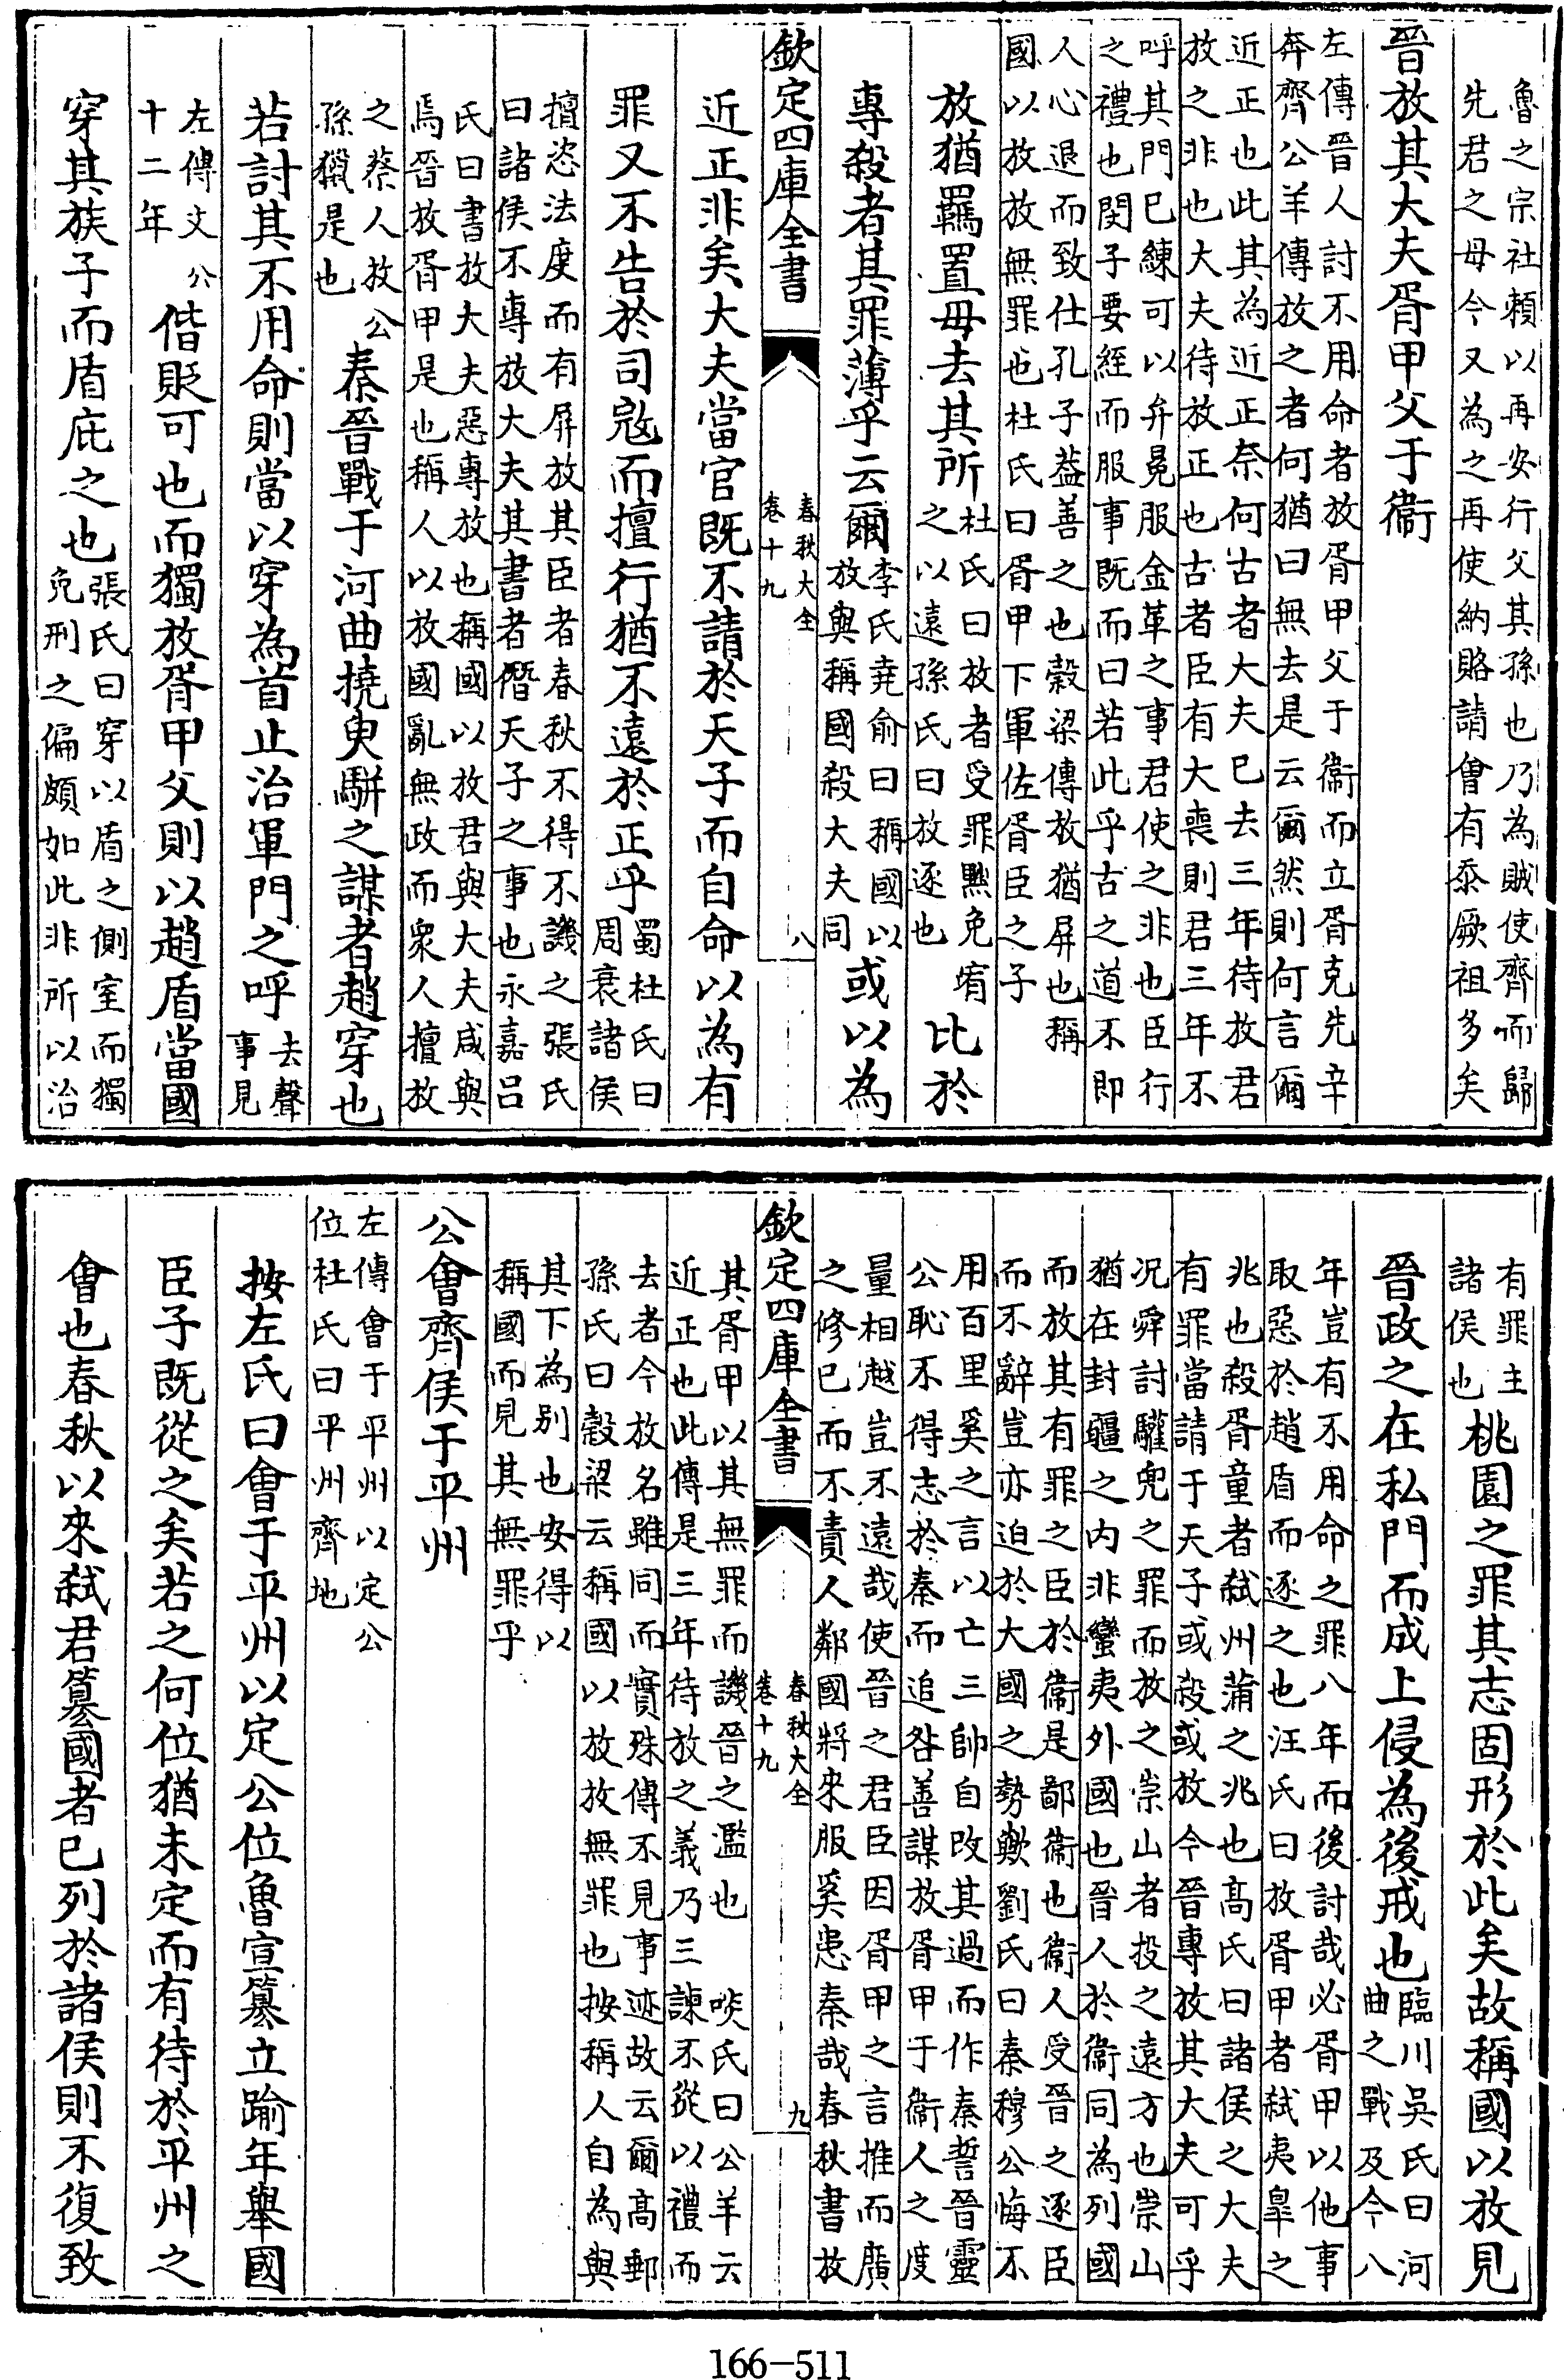 魯之宗社賴以再安行父其孫也乃為賊使齊而歸
先君之母今又為之再使納賂請會有忝厥祖多矣
晉放其大夫胥甲父于衛
左傳晉人討不用命者放胥甲父于衛而立胥克先辛
奔齊公羊傳放之者何猶曰無去是云爾然則何言爾
近正也此其為近正奈何古者大夫已去三年待放君
放之非也大夫待放正也古者臣有大喪則君三年不
呼其門已練可以弁冕服金革之事君使之非也臣行
之禮也閔子要絰而服事既而曰若此乎古之道不即
人心退而致仕孔子葢善之也榖梁傳放猶屏也稱
國以放放無罪也杜氏曰胥甲下軍佐胥臣之子
放猶羈置毋去其所杜氏曰放者受罪黜免宥
之以遠孫氏曰放逐也比於
專殺者其罪薄乎云爾李氏堯俞曰稱國以
放與稱國殺大夫同或以為
欽定四庫全書
春秋大全
卷十九
八
近正非矣大夫當官既不請於天子而自命以為有
罪又不告於司㓂而擅行猶不遠於正乎蜀杜氏曰
周衰諸侯
擅恣法度而有屏放其臣者春秋不得不譏之張氏
曰諸侯不專放大夫其書者僭天子之事也永嘉吕
氏曰書放大夫惡專放也稱國以放君與大夫咸與
焉晉放胥甲是也稱人以放國亂無政而衆人擅放
之蔡人放公
孫獵是也秦晉戰于河曲撓臾駢之謀者趙穿也
若討其不用命則當以穿為首止治軍門之呼去聲
事見
左傳文公
十二年偕貶可也而獨放胥甲父則以趙盾當國
穿其族子而盾庇之也張氏曰穿以盾之側室而獨
免刑之偏頗如此非所以治
有罪主
諸侯也桃園之罪其志固形於此矣故稱國以放見
晉政之在私門而成上侵為後戒也臨川吳氏曰河
曲之戰及今八
年豈有不用命之罪八年而後討哉必胥甲以他事
取惡於趙盾而逐之也汪氏曰放胥甲者弑夷臯之
兆也殺胥童者弑州蒲之兆也髙氏曰諸侯之大夫
有罪當請于天子或殺或放今晉專放其大夫可乎
况舜討驩兜之罪而放之崇山者投之遠方也崇山
猶在封疆之内非蠻夷外國也晉人於衛同為列國
而放其有罪之臣於衛是鄙衛也衛人受晉之逐臣
而不辭豈亦迫於大國之勢歟劉氏曰秦穆公悔不
用百里奚之言以亡三帥自改其過而作秦誓晉靈
公恥不得志於秦而追咎善謀放胥甲于衛人之度
量相越豈不遠哉使晉之君臣因胥甲之言推而廣
之修已而不責人鄰國將來服奚患秦哉春秋書放
欽定四庫全書
春秋大全
卷十九
九
其胥甲以其無罪而譏晉之濫也啖氏曰公羊云
近正也此傳是三年待放之義乃三諫不從以禮而
去者今放名雖同而實殊傳不見事迹故云爾髙郵
孫氏曰榖梁云稱國以放放無罪也按稱人自為與
其下為别也安得以
稱國而見其無罪乎
公會齊侯于平州
左傳會于平州以定公
位杜氏曰平州齊地
按左氏曰會于平州以定公位魯宣簒立踰年舉國
臣子既從之矣若之何位猶未定而有待於平州之
會也春秋以來弑君簒國者已列於諸侯則不復致
166-511